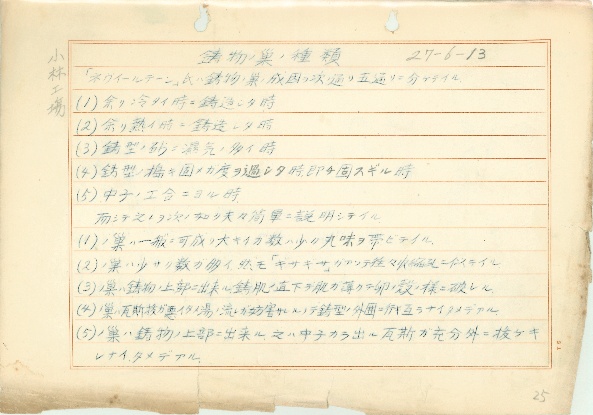 鋳物ノ巣ノ種類 27-6-13
小林工場
「ネウイールテーン」氏ハ鋳物ノ巣ノ成因ヲ次ノ通リ五通リニ分ケテイル
(1) 余リ冷タイ時ニ鋳造シタ時
(2) 余リ熱イ時ニ鋳造シタ時
(3) 鋳型ノ 湿気ノ多イ時
(4) 鋳型ノ搗キ固メガ度ヲ過シタ時即チ固スギル時
(5) 中子ノ工合ニヨル時
而シテ之ヲ次ノ如ク夫々簡単ニ説明シテイル
(1) ノ巣ハ一般ニ可成リ大キイガ数ハ少ク丸味ヲ帯ビテイル
(2) ノ巣ハ少サク数ガ多ク 「ギザギザ」ガアッテ種々
(3) ノ巣ハ鋳物ノ上部ニ出来ル鋳肌ノ直下ヲ肌ガ薄クテ卵ノ殻ノ様ニ破レル
(4) ノ巣ハ瓦斯抜ガ悪イタメ湯ノ流レガ妨害サレルノデ鋳型ノ外囲ニ
(5) ノ巣ハ鋳物ノ上部ニ出来ル 之ハ中子カラ出ル瓦斯ガ充分外ニ抜ケキ
レナイタメデアル
25